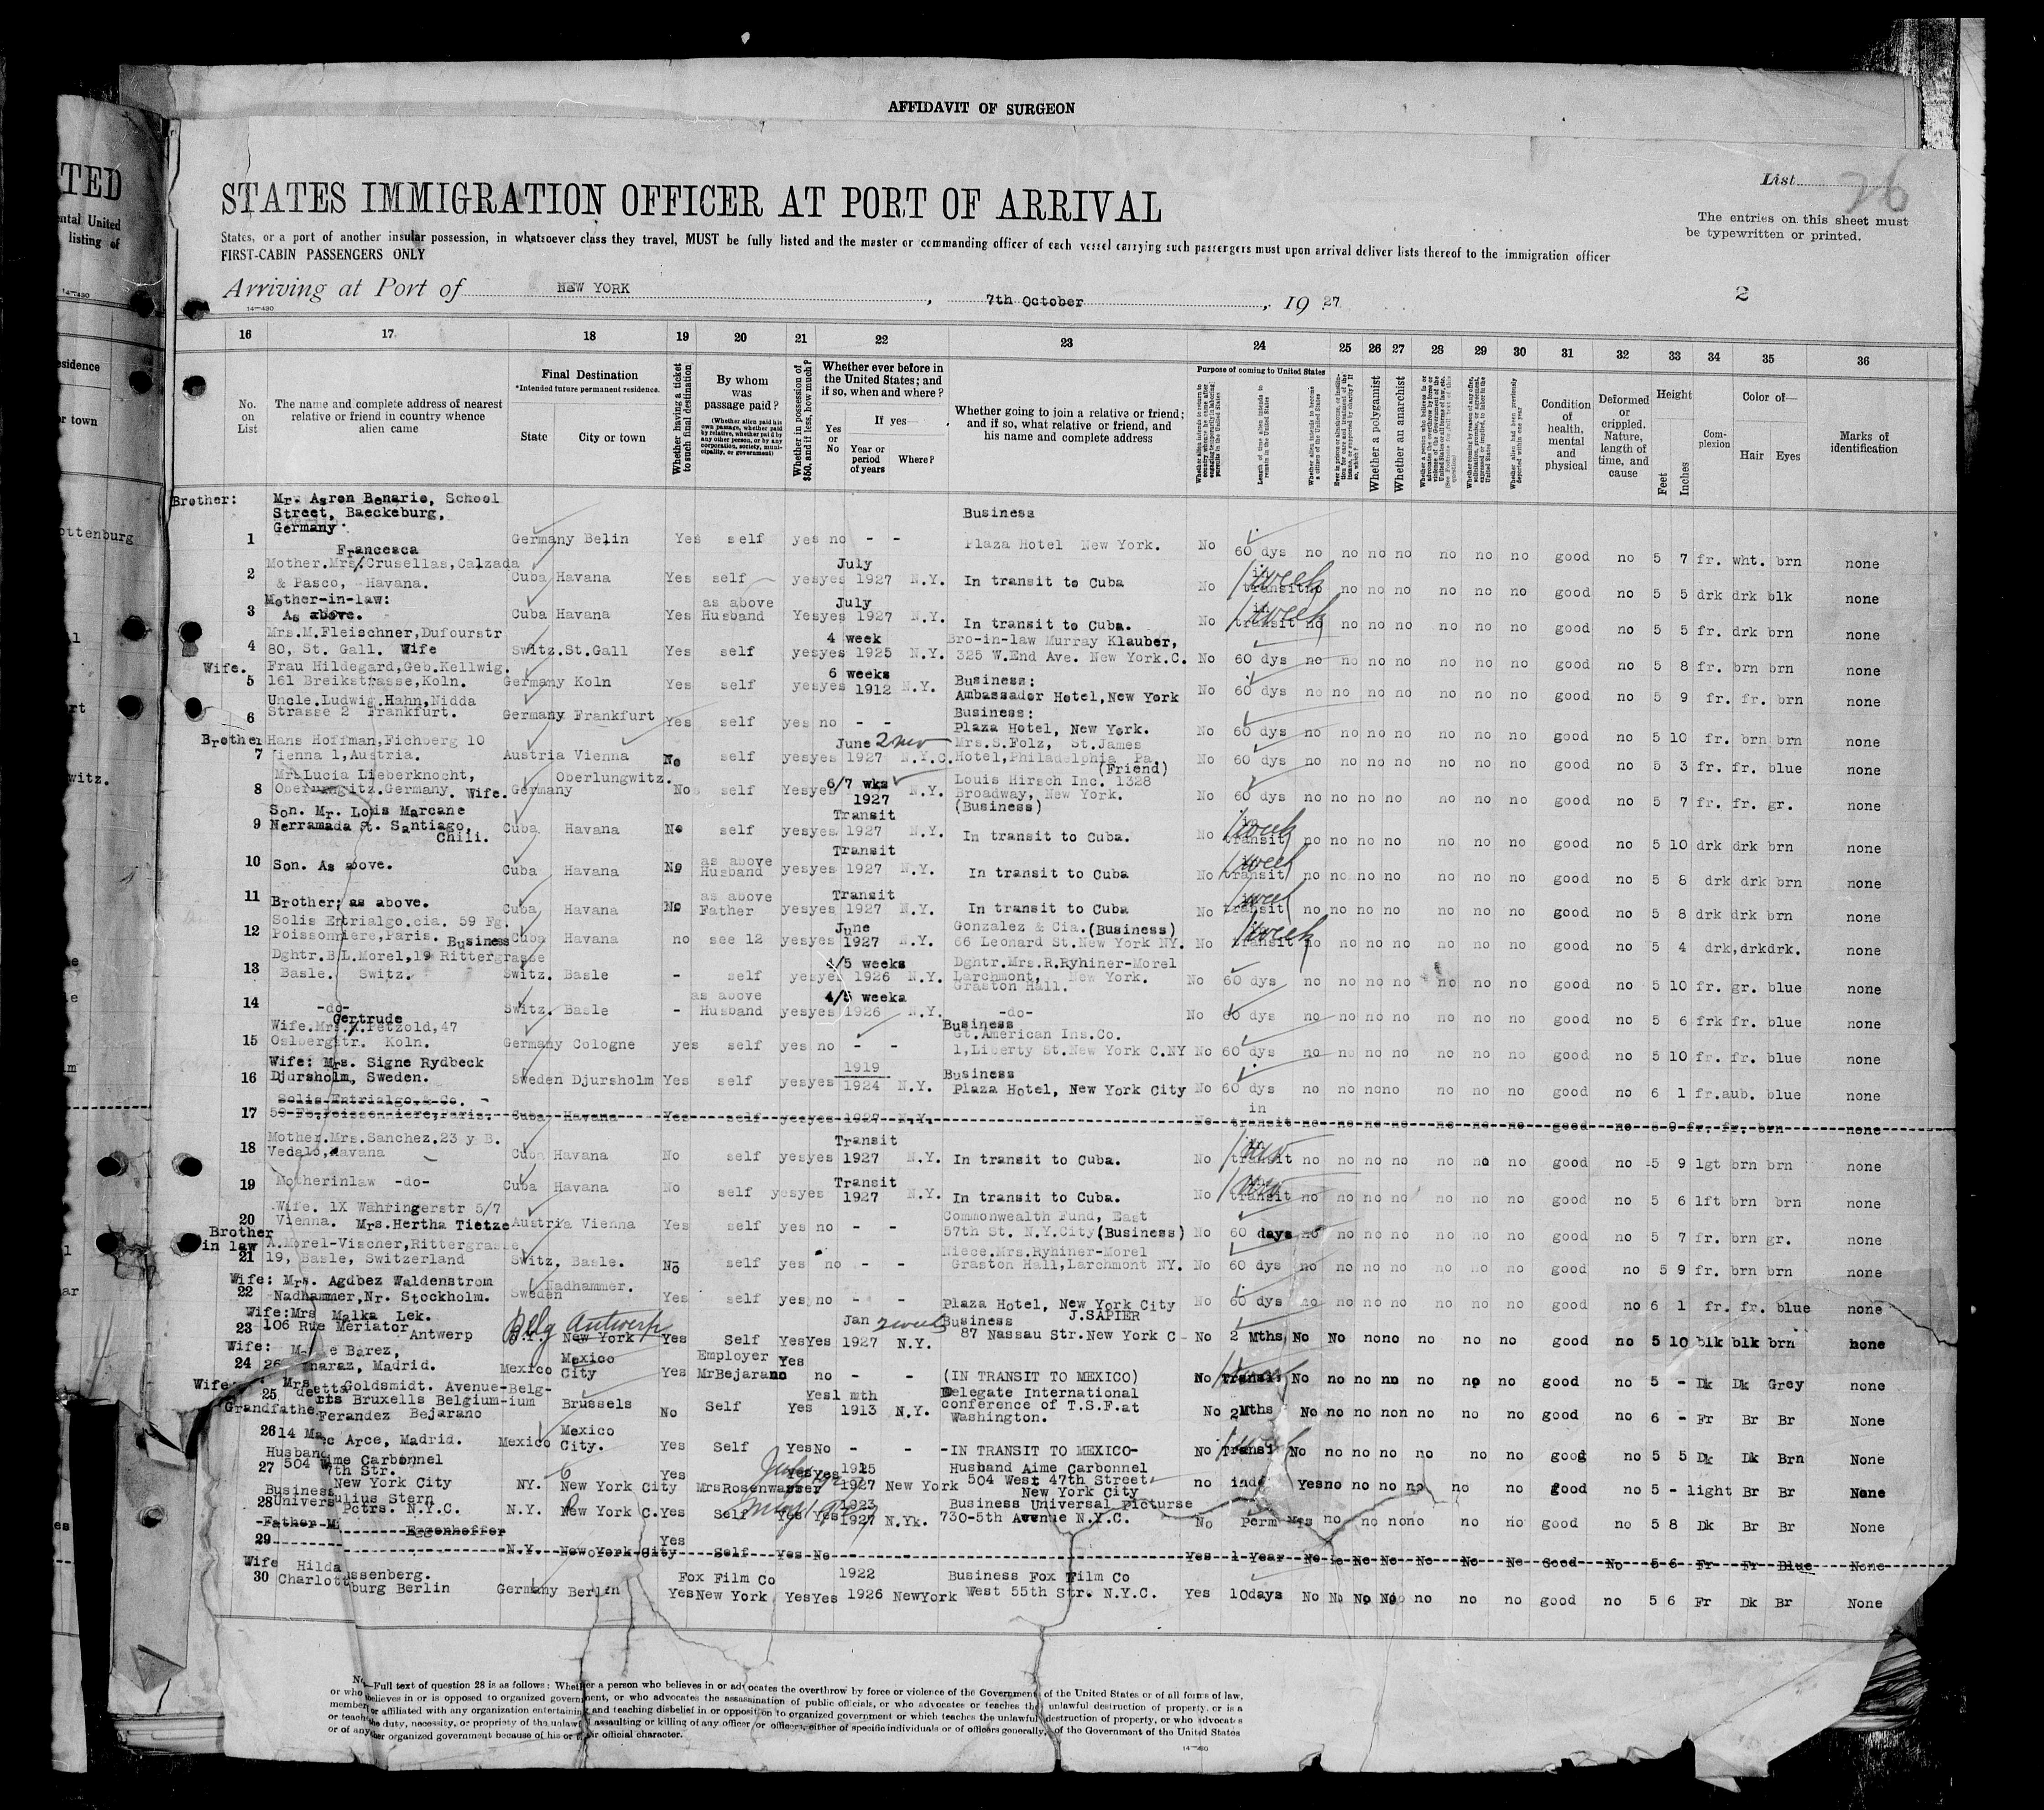 AFFIDAVIT OF SURGEON
TED
ental United
listing of
14-430
esidence
or town
ottenburg
witz.
STATES IMMIGRATION OFFICER AT PORT OF ARRIVAL
List 26
The entries on this sheet must
be typewritten or printed.
States, or a port of another insular possession, in whatsoever class they travel, MUST be fully listed and the master or commanding officer of each vessel carrying such passengers must upon arrival deliver lists thereof to the immigration officer
FIRST-CABIN PASSENGERS ONLY
Arriving at Port of NEW YORK, 7th October, 19 27
2
14-430
16 17 18 19 20 21 22 23 24 25 26 27 28 29 30 31 32 33 34 35 36
No. on List
The name and complete address of nearest relative or friend in country whence alien came
Final Destination
*Intended future permanent residence.
State
City or town
Whether having a ticket to such final destination
By whom was passage paid?
(Whether alien paid his own passage, whether paid by relative, whether paid by any other person, or by any corporation, society, municipality, or government)
Whether in possession of $50, and if less, how much?
Whether ever before in the United States; and if so, when and where?
Yes or No
If yes
Year or period of years
Where?
Whether going to join a relative or friend; and if so, what relative or friend, and his name and complete address
Purpose of coming to United States
Length of time alien intends to remain in the United States
Whether alien intends to become a citizen of the United States
Whether a polygamist
Whether an anarchist
Condition of health, mental and physical
Deformed or crippled. Nature, length of time, and cause
Height
Feet
Inches
Complexion
Color of—
Hair
Eyes
Marks of identification
Brother: Mr. Agron Benario, School
Street, Baeckeburg,
Germany. Business
1 Germany Belin Yes self yes no - - Plaza Hotel New York. No 60 dys no no no no no no no good no 5 7 fr. wht. brn none
Francesca
Mother.Mrs/Crusellas,Calzada July in
2 & Pasco, Havana. Cuba Havana Yes self yes yes 1927 N.Y. In transit to Cuba No transit 1 week no no no no no no no good no 5 5 drk drk blk none
Mother-in-law: as above July in
3 As above. Cuba Havana Yes Husband Yes yes 1927 N.Y. In transit to Cuba. No transit 1 week no no no no no no no good no 5 5 fr. drk brn none
Mrs.M.Fleischner,Dufourstr 4 week Bro-in-law Murray Klauber,
4 80, St. Gall. Wife Switz.St.Gall Yes self yes yes 1925 N.Y. 325 W.End Ave. New York.C. No 60 dys no no no no no no no good no 5 8 fr. brn brn none
Wife. Frau Hildegard,Geb.Kellwig. 6 weeks Business:
5 161 Breikstrasse,Koln. Germany Koln Yes self yes yes 1912 N.Y. Ambassador Hotel,New York No 60 dys no no no no no no no good no 5 9 fr. fr. brn none
Uncle.Ludwig.Hahn,Nidda Business:
6 Strasse 2 Frankfurt. Germany Frankfurt Yes self yes no - - Plaza Hotel, New York. No 60 dys no no no no no no no good no 5 10 fr. brn brn none
Brother Hans Hoffman,Eichberg 10 June Mrs.S.Folz, St.James
7 Vienna 1,Austria. Austria Vienna No self yes yes 1927 N.Y.C. Hotel,Philadelphia Pa. (Friend) No 60 dys no no no no no no no good no 5 3 fr. fr. blue none
Mrs Lucia Lieberknocht, Oberlungwitz. 6/7 wks Louis Hirsch Inc. 1328
8 Germany. Wife. Germany No self Yes yes 1927 N.Y. Broadway, New York. (Business) No 60 dys no no no no no no no good no 5 7 fr. fr. gr. none
Son. Mr. Lois Marcane Transit in
9 Nerramada St. Santiago, Chili. Cuba Havana No self yes yes 1927 N.Y. In transit to Cuba. No transit 1 week no no no no no no no good no 5 10 drk drk brn none
as above Transit
10 Son. As above. Cuba Havana No Husband yes yes 1927 N.Y. In transit to Cuba No transit 1 week no no no no no no no good no 5 8 drk drk brn none
as above Transit
11 Brother; as above. Cuba Havana No Father yes yes 1927 N.Y. In transit to Cuba No transit 1 week no no no no no no no good no 5 8 drk drk brn none
Solis Entrialgo.cia. 59 Fg. June Gonzalez & Cia.(Business)
12 Poissonniere,Paris. Business Cuba Havana no see 12 yes yes 1927 N.Y. 66 Leonard St.New York NY. No transit 1 week no no no no no no no good no 5 4 drk,drkdrk. none
Dghtr.B.L.Morel,19 Rittergrasse 4/5 weeks Dghtr.Mrs.R.Ryhiner-Morel
13 Basle. Switz. Switz. Basle - self yes yes 1926 N.Y. Larchmont, New York. Graston Hall. No 60 dys no no no no no no no good no 5 10 fr. gr. blue none
as above 4/5 weeks
14 -do- Switz. Basle - Husband yes yes 1926 N.Y. -do- No 60 dys no no no no no no no good no 5 6 frk fr. blue none
Gertrude
Wife.Mrs. Petzold,47 Business Gt.American Ins.Co.
15 Oslbergstr. Koln. Germany Cologne yes self yes no - - 1,Liberty St.New York C.NY No 60 dys no no no no no no no good no 5 10 fr. fr. blue none
Wife: Mrs. Signe Rydbeck 1919 Business
16 Djursholm, Sweden. Sweden Djursholm Yes self yes yes 1924 N.Y. Plaza Hotel, New York City No 60 dys no no no no no no no good no 6 1 fr.aub. blue none
Solis Entrialgo & Co. in
17 59 Fg.Poissonniere,Paris. Cuba Havana Yes self yes yes 1927 N.Y. No transit no no no no no no no good no 5 9 fr. fr. brn none
Mother.Mrs.Sanchez.23 y B. Transit
18 Vedalo,Havana Cuba Havana No self yes yes 1927 N.Y. In transit to Cuba. No transit no no no no no no no good no 5 9 lgt brn brn none
Transit
19 Motherinlaw -do- Cuba Havana No self yes yes 1927 N.Y. In transit to Cuba. No transit no no no no no no no good no 5 6 lft brn brn none
Wife. 1X Wahringerstr 5/7 Commonwealth Fund, East
20 Vienna. Mrs.Hertha Tietze Austria Vienna Yes self yes no - - 57th St. N.Y.City(Business) No 60 days no no no no no no no good no 5 7 fr. brn gr. none
Brother in law A.Morel-Vischer,Rittergrasse Niece.Mrs.Ryhiner-Morel
21 19, Basle, Switzerland Switz. Basle. No self yes no - - Graston Hall,Larchmont NY. No 60 dys no no no no no no no good no 5 9 fr. brn brn none
Wife: Mrs. Agdbez Waldenstrom Nadhammer.
22 Nadhammer,Nr. Stockholm. Sweden Yes self yes no - - Plaza Hotel, New York City No 60 dys no no no no no no no good no 6 1 fr. fr. blue none
Wife:Mrs Malka Lek. Belg Antwerp Jan 2 weeks Business J.SAPIER
23 106 Rue Meriator Antwerp N.Y. New York Yes Self Yes Yes 1927 N.Y. 87 Nassau Str.New York C No 2 Mths No No no no no no no good no 5 10 blk blk brn none
Wife: Barez, Mexico Employer Yes
24 26 Madrid. Mexico City Yes MrBejarano no - - (IN TRANSIT TO MEXICO) No Transit No no no no no no no good no 5 - Dk Dk Grey none
Wife: Mrs Goldsmidt. Avenue-Belg- Yes 1 mth Delegate International
25 Bruxells Belgium-ium Brussels No Self Yes 1913 N.Y. conference of T.S.F.at Washington. No 2Mths No no no non no no no good no 6 - Fr Br Br None
Grandfathe Ferandez Bejarano Mexico
26 14 Arce, Madrid. Mexico City. Yes Self Yes No - - -IN TRANSIT TO MEXICO- No Transit No no no no no no no good no 5 5 Dk Dk Brn none
Husband Aime Carbonnel 1925 Husband Aime Carbonnel
27 504 7th Str. New York City NY. New York City Yes MrsRosenwasser Yes Yes 1927 New York 504 West 47th Street New York City no ind Yes no no no no no no good no 5 - light Br Br None
Business Julius Stern 1923 Business Universal Picturse
28 Univers Pctrs. N.Y.C. N.Y. New York C. Yes Self Yes Yes 1927 N.Yk. 730-5th Avenue N.Y.C. No Perm Yes no no nono no no good no 5 8 Dk Br Br None
Father Eggenhoffer
29 N.Y. New York City Yes Self Yes No - Yes 1 Year No No No No No No Good No 5 6 Fr Fr Blue None
Wife Hilda ssenberg. Fox Film Co 1922 Business Fox Film Co
30 Charlott burg Berlin Germany Berlin Yes New York Yes Yes 1926 NewYork West 55th Str. N.Y.C. Yes 10days No No No No no no no good no 5 6 Fr Dk Br None
—Full text of question 28 is as follows: Whether a person who believes in or advocates the overthrow by force or violence of the Government of the United States or of all forms of law,
or who believes in or is opposed to organized government, or who advocates the assassination of public officials, or who advocates or teaches the unlawful destruction of property, or is a
member or affiliated with any organization entertaining and teaching disbelief in or opposition to organized government or which teaches the unlawful destruction of property, or who advocates
or teaches the duty, necessity, or propriety of the unlawful assaulting or killing of any officer or officers, either of specific individuals or of officers generally, of the Government of the United States
or of any other organized government because of his or their official character.
14-430